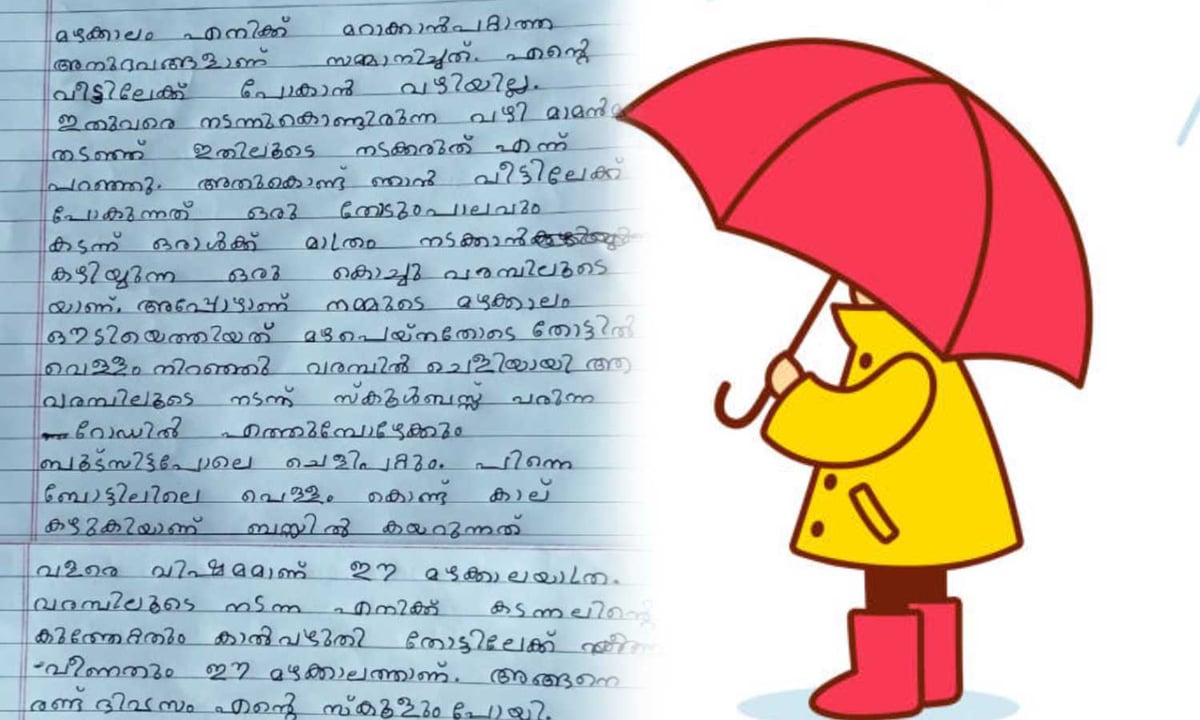 മഴക്കാലം എനിക്ക് മറക്കാൻപറ്റാത്ത
അനുഭവങ്ങളാണ് സമ്മാനിച്ചത്. എന്റെ
വീട്ടിലേക്ക് പോകാൻ വഴിയില്ല.
ഇതുവരെ നടന്നുകൊണ്ടിരുന്ന വഴി മാമൻമ
തടഞ്ഞ് ഇതിലൂടെ നടക്കരുത് എന്ന്
പറഞ്ഞു. അതുകൊണ്ട് ഞാൻ വീട്ടിലേക്ക്
പോകുന്നത് ഒരു തോടുംപാലവും
കടന്ന് ഒരാൾക്ക് മാത്രം നടക്കാൻ
കഴിയുന്ന ഒരു കൊച്ചു വരമ്പിലൂടെ
യാണ്. അപ്പോഴാണ് നമ്മുടെ മഴക്കാലം
ഓടിയെത്തിയത് മഴപെയ്തതോടെ തോട്ടിൽ
വെള്ളം നിറഞ്ഞു വരമ്പിൽ ചെളിയായി ആ
വരമ്പിലൂടെ നടന്ന് സ്കൂൾബസ്സ് വരുന്ന
റോഡിൽ എത്തുമ്പോഴേക്കും
ബൂട്ട്സിട്ടപോലെ ചെളിപറ്റും. പിന്നെ
ബോട്ടിലിലെ വെള്ളം കൊണ്ട് കാല്
കഴുകിയാണ് ബസ്സിൽ കയറുന്നത്
വളരെ വിഷമമാണ് ഈ മഴക്കാലയാത്ര.
വരമ്പിലൂടെ നടന്ന എനിക്ക് കടന്നലിന്റെ
കുത്തേറ്റതും കാൽവഴുതി തോട്ടിലേക്ക്
വീണതും ഈ മഴക്കാലത്താണ്. അങ്ങനെ
രണ്ട് ദിവസം എന്റെ സ്കൂളും പോയി.